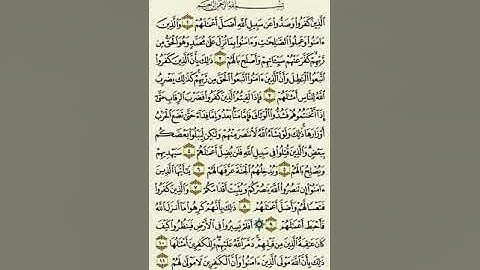 بِسْمِ ٱللَّهِ ٱلرَّحْمَٰنِ ٱلرَّحِيمِ
ٱلَّذِينَ كَفَرُوا۟ وَصَدُّوا۟ عَن سَبِيلِ ٱللَّهِ أَضَلَّ أَعْمَٰلَهُمْ ١ وَٱلَّذِينَ
ءَامَنُوا۟ وَعَمِلُوا۟ ٱلصَّٰلِحَٰتِ وَءَامَنُوا۟ بِمَا نُزِّلَ عَلَىٰ مُحَمَّدٍ وَهُوَ ٱلْحَقُّ مِن
رَّبِّهِمْ كَفَّرَ عَنْهُمْ سَيِّـَٔاتِهِمْ وَأَصْلَحَ بَالَهُمْ ٢ ذَٰلِكَ بِأَنَّ ٱلَّذِينَ كَفَرُوا۟
ٱتَّبَعُوا۟ ٱلْبَٰطِلَ وَأَنَّ ٱلَّذِينَ ءَامَنُوا۟ ٱتَّبَعُوا۟ ٱلْحَقَّ مِن رَّبِّهِمْ كَذَٰلِكَ يَضْرِبُ
ٱللَّهُ لِلنَّاسِ أَمْثَٰلَهُمْ ٣ فَإِذَا لَقِيتُمُ ٱلَّذِينَ كَفَرُوا۟ فَضَرْبَ ٱلرِّقَابِ حَتَّىٰٓ
إِذَآ أَثْخَنتُمُوهُمْ فَشُدُّوا۟ ٱلْوَثَاقَ فَإِمَّا مَنًّۢا بَعْدُ وَإِمَّا فِدَآءً حَتَّىٰ تَضَعَ ٱلْحَرْبُ
أَوْزَارَهَا ذَٰلِكَ وَلَوْ يَشَآءُ ٱللَّهُ لَٱنتَصَرَ مِنْهُمْ وَلَٰكِن لِّيَبْلُوَا۟ بَعْضَكُم
بِبَعْضٍ وَٱلَّذِينَ قُتِلُوا۟ فِى سَبِيلِ ٱللَّهِ فَلَن يُضِلَّ أَعْمَٰلَهُمْ ٤ سَيَهْدِيهِمْ
وَيُصْلِحُ بَالَهُمْ ٥ وَيُدْخِلُهُمُ ٱلْجَنَّةَ عَرَّفَهَا لَهُمْ ٦ يَٰٓأَيُّهَا ٱلَّذِينَ
ءَامَنُوٓا۟ إِن تَنصُرُوا۟ ٱللَّهَ يَنصُرْكُمْ وَيُثَبِّتْ أَقْدَامَكُمْ ٧ وَٱلَّذِينَ كَفَرُوا۟
فَتَعْسًا لَّهُمْ وَأَضَلَّ أَعْمَٰلَهُمْ ٨ ذَٰلِكَ بِأَنَّهُمْ كَرِهُوا۟ مَآ أَنزَلَ ٱللَّهُ
فَأَحْبَطَ أَعْمَٰلَهُمْ ٩ ۞ أَفَلَمْ يَسِيرُوا۟ فِى ٱلْأَرْضِ فَيَنظُرُوا۟ كَيْفَ
كَانَ عَٰقِبَةُ ٱلَّذِينَ مِن قَبْلِهِمْ دَمَّرَ ٱللَّهُ عَلَيْهِمْ وَلِلْكَٰفِرِينَ أَمْثَٰلُهَا ١٠
ذَٰلِكَ بِأَنَّ ٱللَّهَ مَوْلَى ٱلَّذِينَ ءَامَنُوا۟ وَأَنَّ ٱلْكَٰفِرِينَ لَا مَوْلَىٰ لَهُمْ ١١